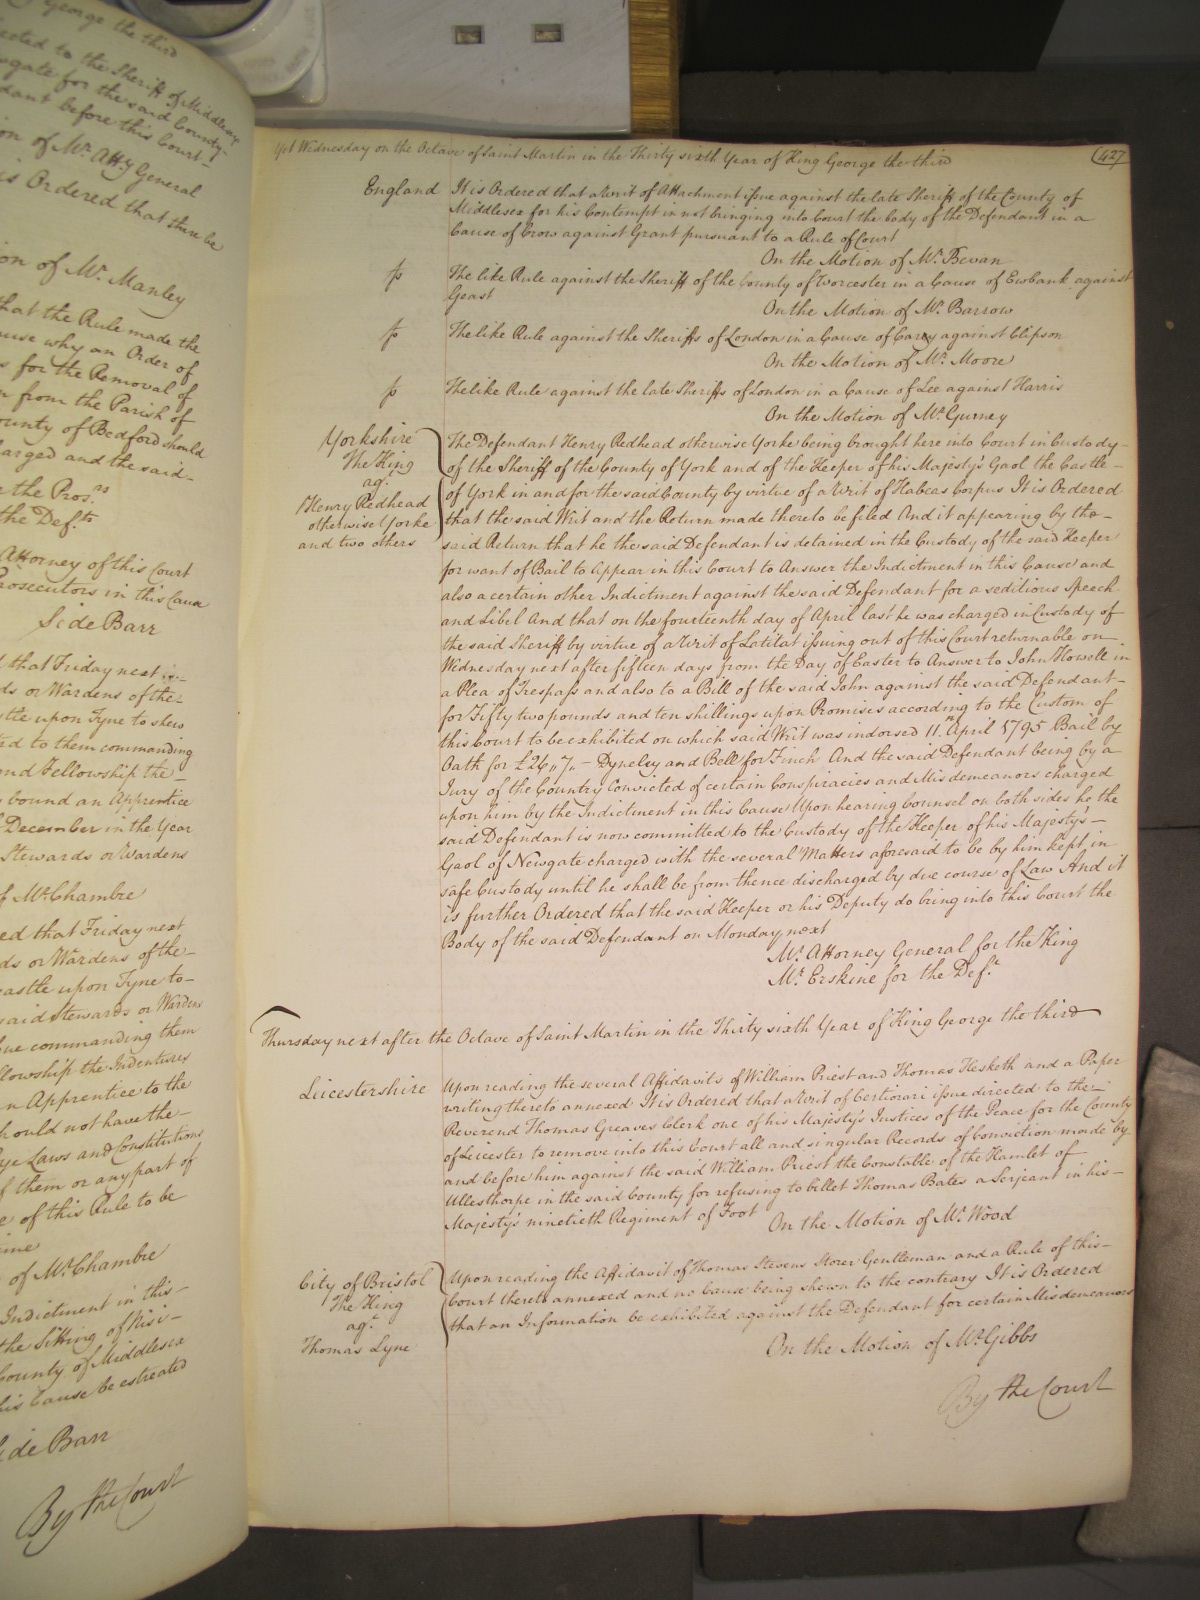 George the third
ected to the Sheriff of Middlesex
wgate for the said County
dant before this Court
on of Mr. Atty General
is Ordered that there be
on of Mr. Manley
hat the Rule made the
ause why an Order of
s for the Removal of
n from the Parish of
ounty of Bedford should
arged and the said
the Pros.rs
the Def.ts
Attorney of this Court
rosecutors in this Cause
Side Barr
d that Friday next
ds or Wardens of the
stle upon Tyne to shew
ed to them commanding
and Fellowship the
bound an Apprentice
December in the Year
Stewards or Wardens
f Mr. Chambre
ed that Friday next
ds or Wardens of the
castle upon Tyne to
said Stewards or Wardens
ue commanding them
llowship the Indentures
n Apprentice to the
hould not have the
ye Laws and Constitutions
f them or any part of
e of this Rule to be
ime
of Mr. Chambre
Indictment in this
the Sitting of Nisi
County of Middlesex
his Cause be estreated
Side Barr
By the Court
427
Yet Wednesday on the Octave of Saint Martin in the Thirty sixth Year of King George the third
England It is Ordered that a Writ of Attachment issue against the late Sheriff of the County of
Middlesex for his Contempt in not bringing into Court the body of the Defendant in a
Cause of Crow against Grant pursuant to a Rule of Court
On the Motion of Mr. Bevan
The like Rule against the Sheriff of the County of Worcester in a Cause of Ewbank against
Geast
On the Motion of Mr. Barrow
The like Rule against the Sheriffs of London in a Cause of Carey against Clipson
On the Motion of Mr. Moore
The like Rule against the late Sheriffs of London in a Cause of Lee against Harris
On the Motion of Mr. Gurney
Yorkshire
The King
ag.t
Henry Redhead
otherwise Yorke
and two others
The Defendant Henry Redhead otherwise Yorke being brought here into Court in Custody
of the Sheriff of the County of York and of the Keeper of his Majesty's Gaol the Castle
of York in and for the said County by virtue of a Writ of Habeas Corpus It is Ordered
that the said Writ and the Return made thereto be filed And it appearing by the
said Return that he the said Defendant is detained in the Custody of the said Keeper
for want of Bail to Appear in this Court to Answer the Indictment in this Cause and
also a certain other Indictment against the said Defendant for a seditious Speech
and Libel And that on the fourteenth day of April last he was charged in Custody of
the said Sheriff by virtue of a Writ of Latitat issuing out of this Court returnable on
Wednesday next after fifteen days from the Day of Easter to Answer to John Howell in
a Plea of Trespass and also to a Bill of the said John against the said Defendant
for Fifty two pounds and ten shillings upon Promises according to the Custom of
this Court to be exhibited on which said Writ was indorsed 11.th April 1795 Bail by
Oath for £26,,7,,- Dyneley and Bell for Finch And the said Defendant being by a
Jury of the Country Convicted of certain Conspiracies and Misdemeanors charged
upon him by the Indictment in this Cause Upon hearing Counsel on both sides he the
said Defendant is now committed to the Custody of the Keeper of his Majesty's
Gaol of Newgate charged with the several Matters aforesaid to be by him kept in
safe Custody until he shall be from thence discharged by due course of Law And it
is further Ordered that the said Keeper or his Deputy do bring into this Court the
Body of the said Defendant on Monday next
Mr. Attorney General for the King
Mr. Erskine for the Def.t
Thursday next after the Octave of Saint Martin in the Thirty sixth Year of King George the third
Leicestershire Upon reading the several Affidavits of William Priest and Thomas Hesketh and a Paper
writing thereto annexed It is Ordered that a Writ of Certiorari issue directed to the
Reverend Thomas Greaves Clerk one of his Majesty's Justices of the Peace for the County
of Leicester to remove into this Court all and singular Records of Conviction made by
and before him against the said William Priest the Constable of the Hamlet of
Ullesthorpe in the said County for refusing to billet Thomas Bates a Serjeant in his
Majesty's ninetieth Regiment of Foot
On the Motion of Mr. Wood
City of Bristol
The King
ag.t
Thomas Lyne
Upon reading the Affidavit of Thomas Stevens Storer Gentleman and a Rule of this
Court thereto annexed and no Cause being shewn to the contrary It is Ordered
that an Information be exhibited against the Defendant for certain Misdemeanors
On the Motion of Mr. Gibbs
By the Court